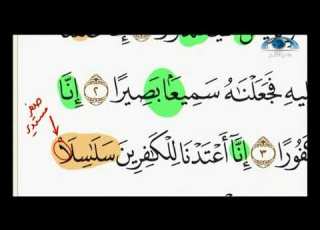 ليهِ فَجَعَلْنَٰهُ سَمِيعًۢا بَصِيرًا ٢ إِنَّا
كَفُورًا ٣ إِنَّآ أَعْتَدْنَا لِلْكَٰفِرِينَ سَلَٰسِلَا۟
صفر
مستدير